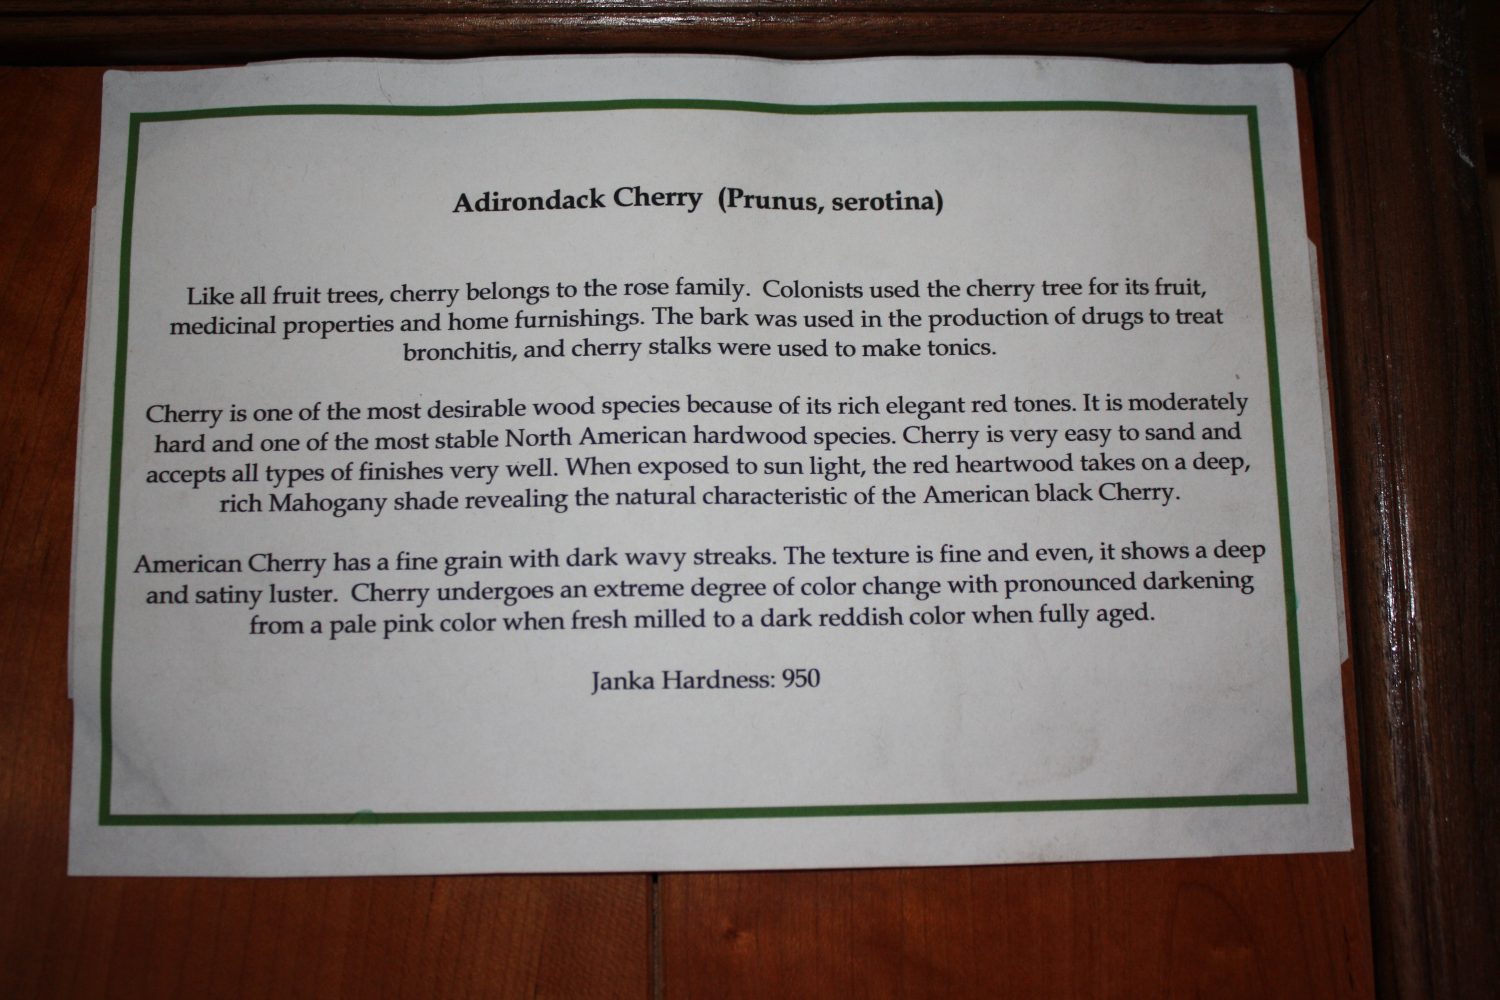 Adirondack Cherry  (Prunus, serotina)
Like all fruit trees, cherry belongs to the rose family.  Colonists used the cherry tree for its fruit,
medicinal properties and home furnishings. The bark was used in the production of drugs to treat
bronchitis, and cherry stalks were used to make tonics.
Cherry is one of the most desirable wood species because of its rich elegant red tones. It is moderately
hard and one of the most stable North American hardwood species. Cherry is very easy to sand and
accepts all types of finishes very well. When exposed to sun light, the red heartwood takes on a deep,
rich Mahogany shade revealing the natural characteristic of the American black Cherry.
American Cherry has a fine grain with dark wavy streaks. The texture is fine and even, it shows a deep
and satiny luster.  Cherry undergoes an extreme degree of color change with pronounced darkening
from a pale pink color when fresh milled to a dark reddish color when fully aged.
Janka Hardness: 950